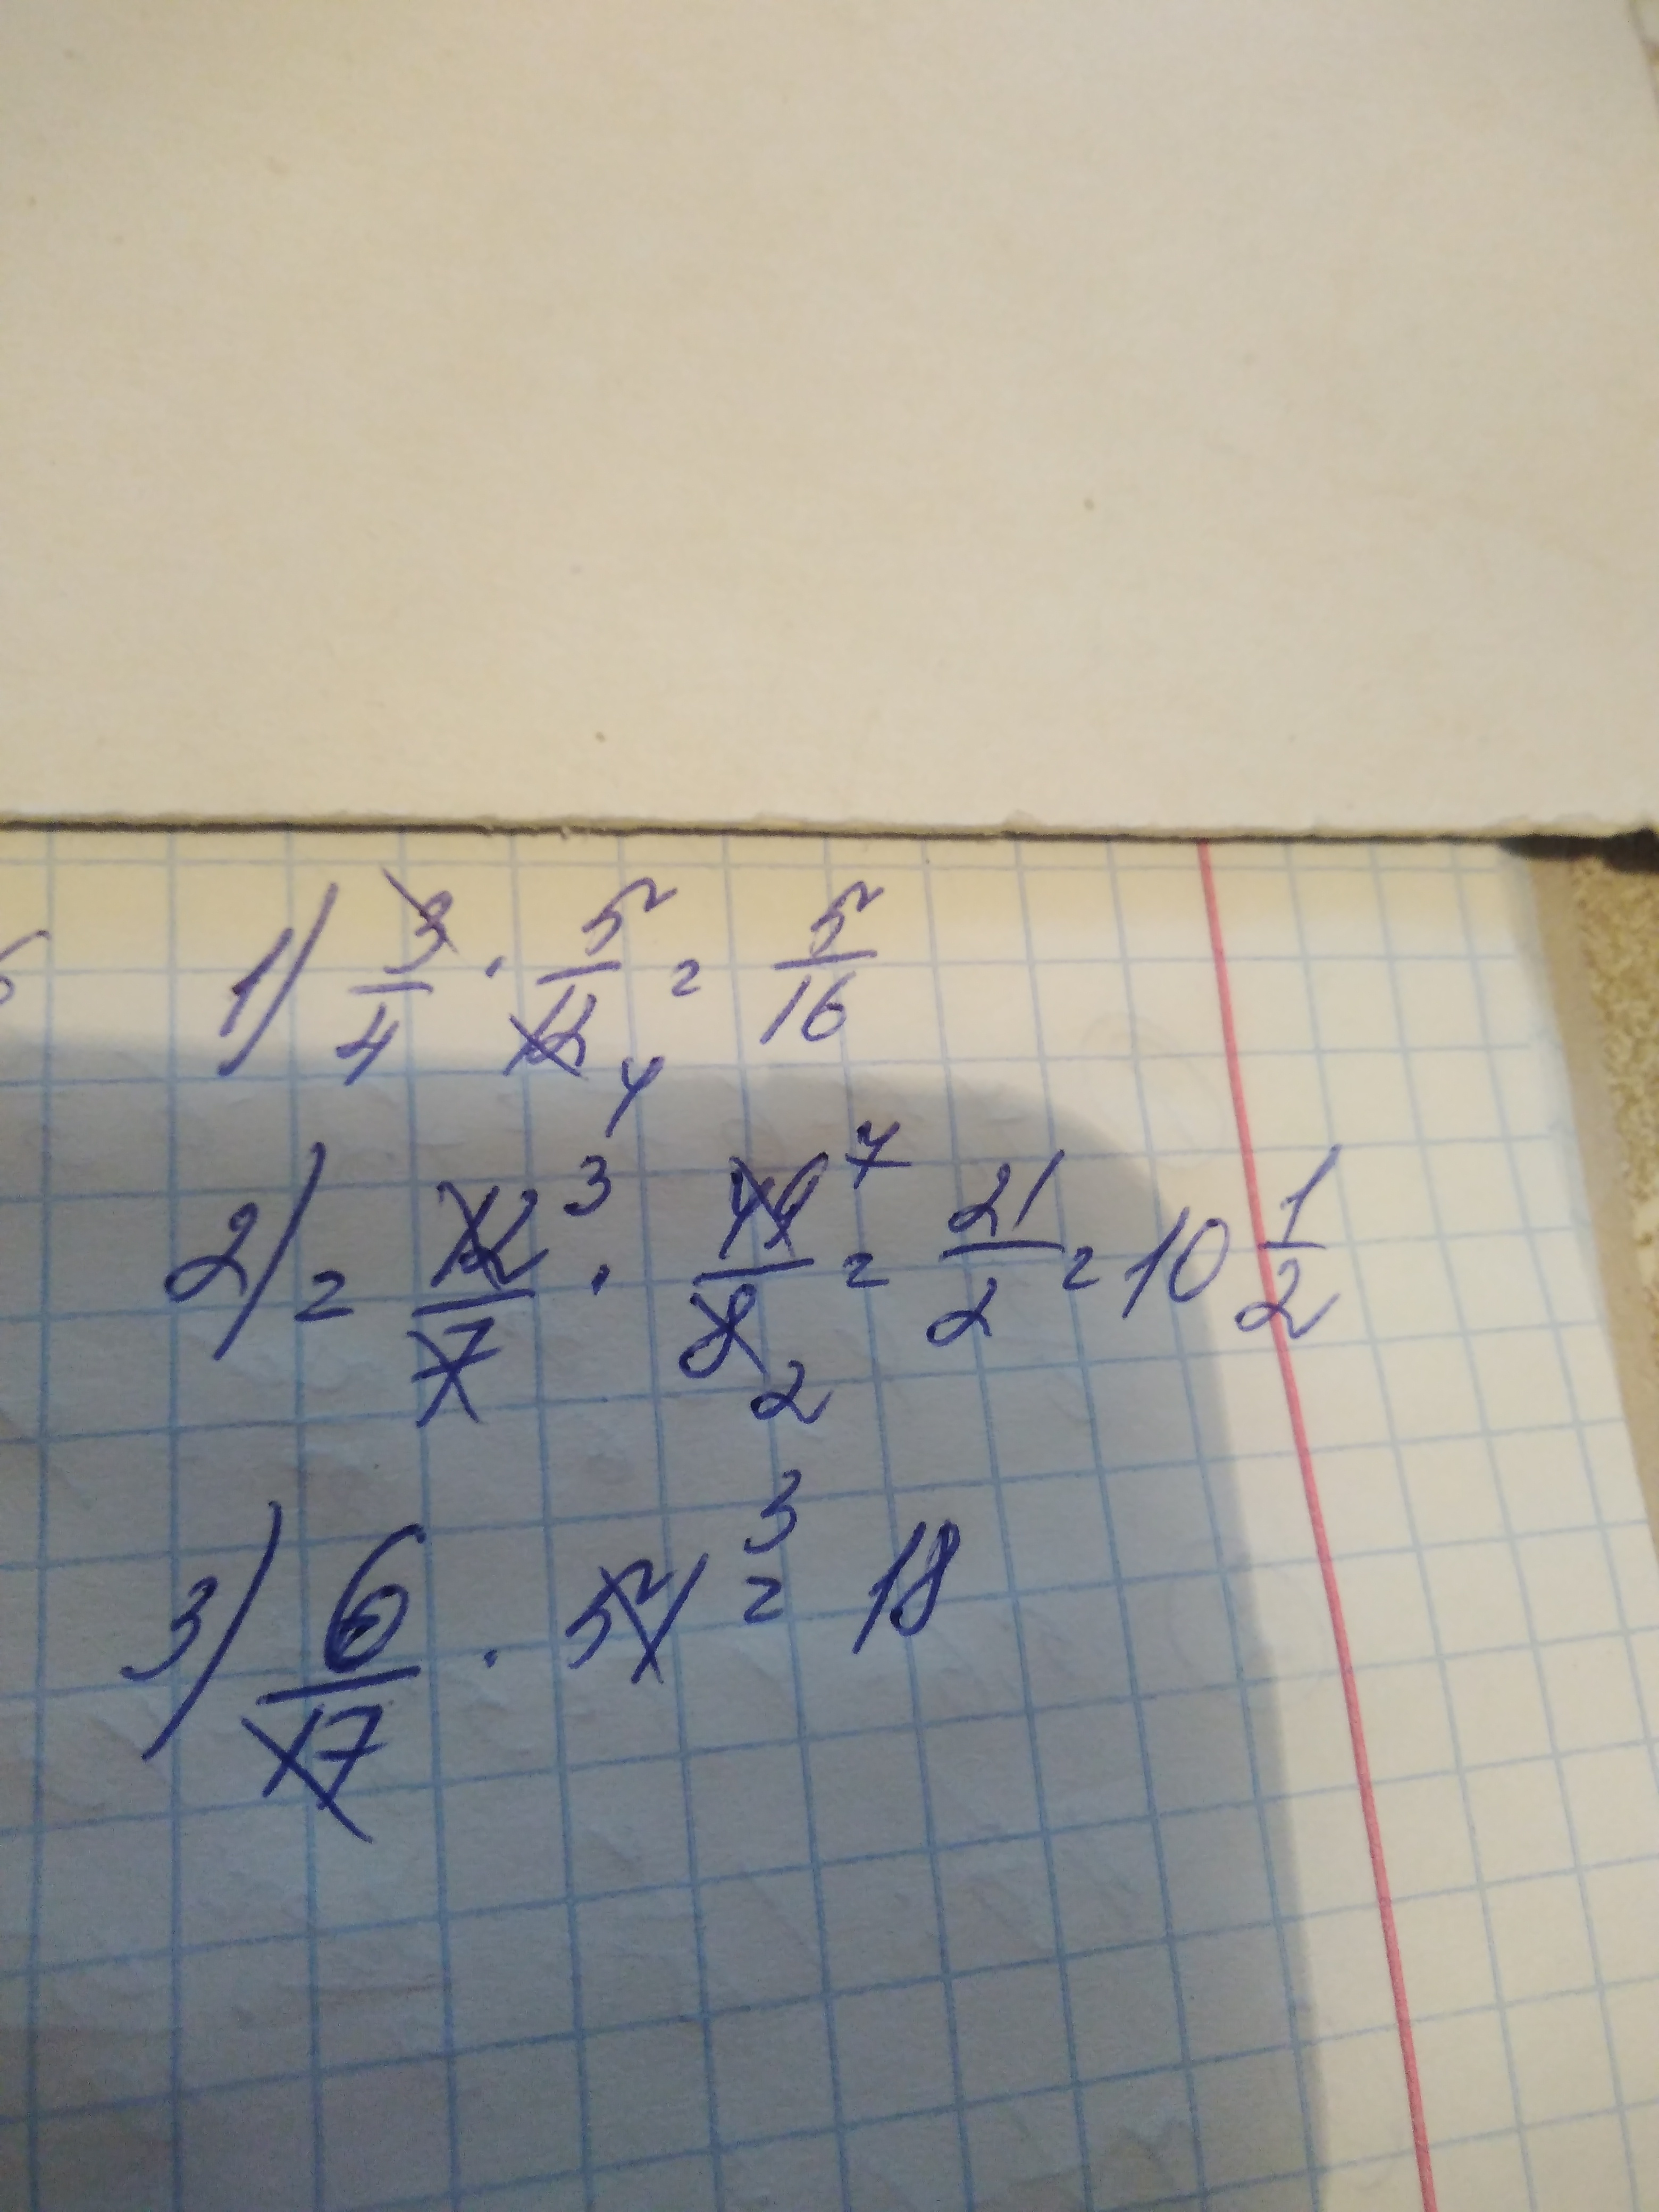 1) 3/4 · 5/12 4 = 5/16
2) = 12/7 3 · 49/8 7 2 = 21/2 = 10 1/2
3) 6/17 · 51 3 = 18